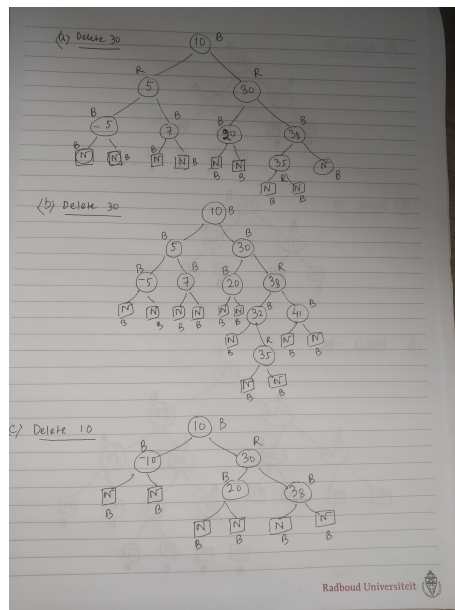 (a) Delete 30
10 B
R R
5 30
B B B B
-5 7 20 38
35 N
B N N B N N B N N R B
N N
B B B B
(b) Delete 30
10 B
B B
5 30
B B B R
-5 7 20 38
B B
N N N N N N 32 41
B B B B B B
N R N N
35
B B B
N N
B B
c) Delete 10
10 B
B R
-10 30
B B
N N 20 38
B B
N N N N
B B B B
Radboud Universiteit